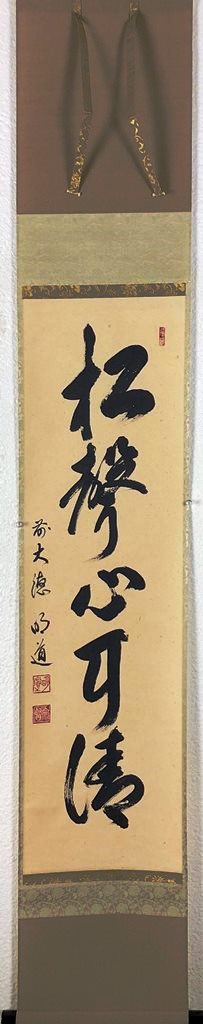 松聲心耳清
前大德明道